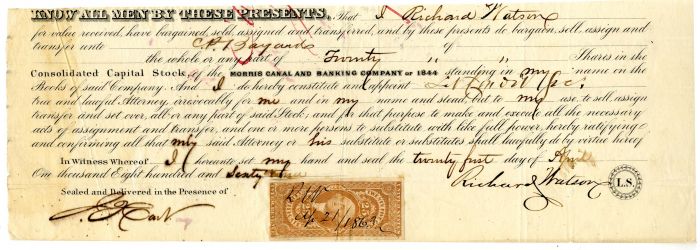 KNOW ALL MEN BY THESE PRESENTS, That I Richard Watson
for value received, have bargained, sold, assigned and transferred, and by these presents do bargain, sell, assign and
transfer unto C.P. Bayards of
the whole or any part of Twenty " " Shares in the
Consolidated Capital Stock of the MORRIS CANAL AND BANKING COMPANY OF 1844 standing in my name on the
Books of said Company. And I do hereby constitute and appoint
true and lawful Attorney, irrevocably for me and in my name and stead, but to my use, to sell, assign
transfer and set over, all or any part of said Stock; and for that purpose to make and execute all the necessary
acts of assignment and transfer, and one or more persons to substitute with like full power, hereby ratifying
and confirming all that my said Attorney or his substitute or substitutes shall lawfully do by virtue hereof
In Witness Whereof I hereunto set my hand and seal the twenty first day of April
one Thousand Eight Hundred and Sixty
Sealed and Delivered in the Presence of
Richard Watson
L.S.
R W
Ap 21/1863